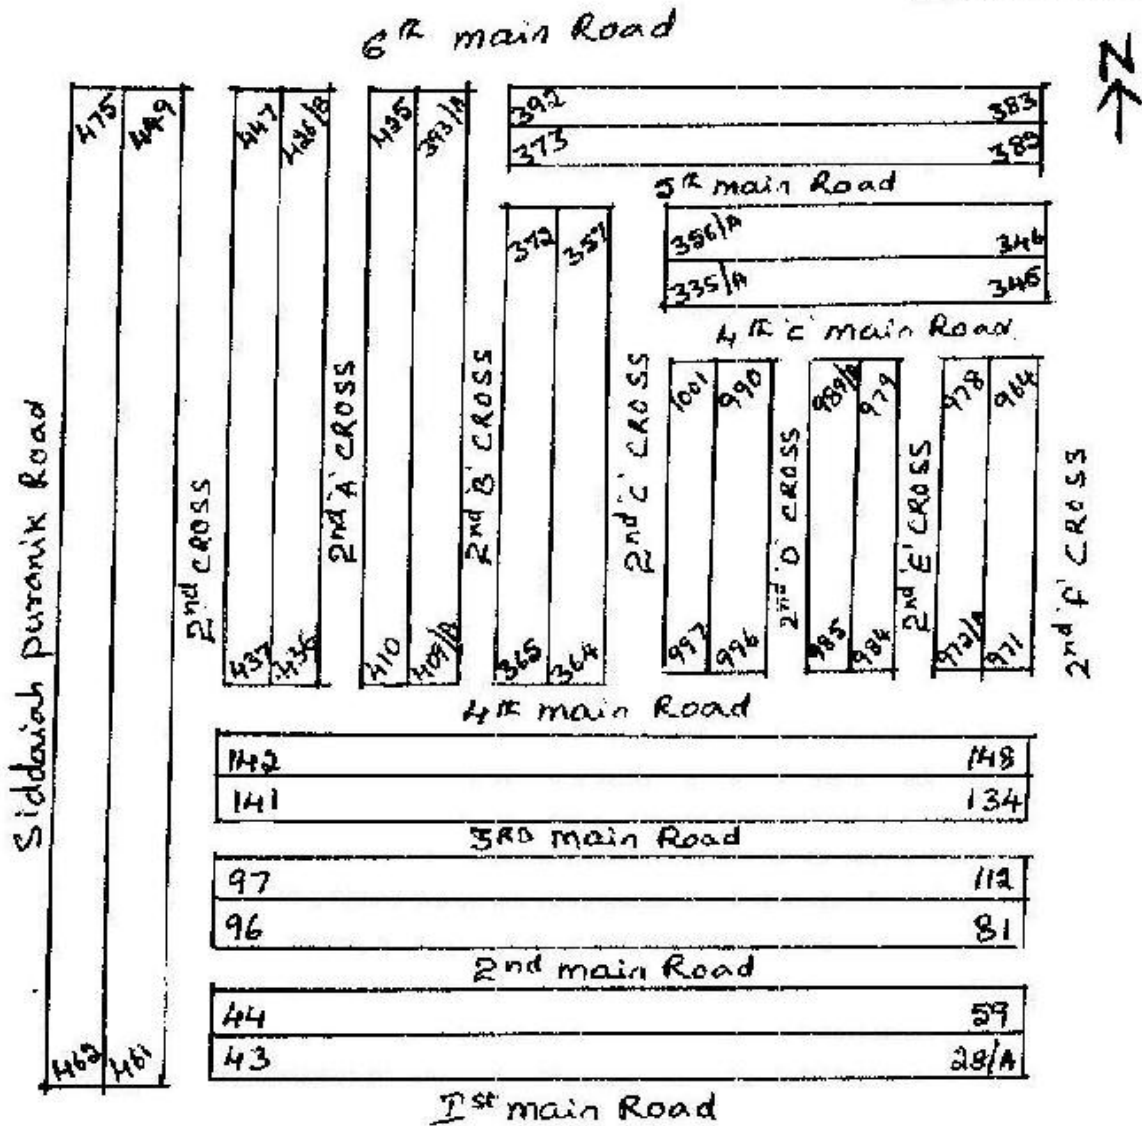 6th main Road
N
475 449 447 426/B 425 393/A 392 383
373 389
5th main Road
372 357 356/A 346
335/A 345
4th 'C' main Road
1001 990 989/A 979 978 964
Siddaiah puranik Road
2nd CROSS
2nd 'A' CROSS
2nd 'B' CROSS
2nd 'C' CROSS
2nd 'D' CROSS
2nd 'E' CROSS
2nd 'F' CROSS
437 436 410 409/A 365 364 997 996 985 984 972/A 971
4th main Road
142 148
141 134
3RD main Road
97 112
96 81
2nd main Road
44 59
43 28/A
462 461
Ist main Road